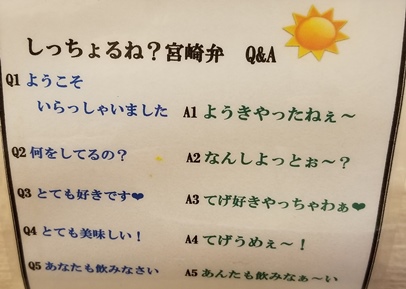 しっちょるね?宮崎弁 Q&A
Q1 ようこそ
いらっしゃいました A1 ようきやったねぇ~
Q2 何をしてるの? A2 なんしよっとぉ~?
Q3 とても好きです❤ A3 てげ好きやっちゃわぁ❤
Q4 とても美味しい! A4 てげうめぇ~!
Q5 あなたも飲みなさい A5 あんたも飲みなぁ~い